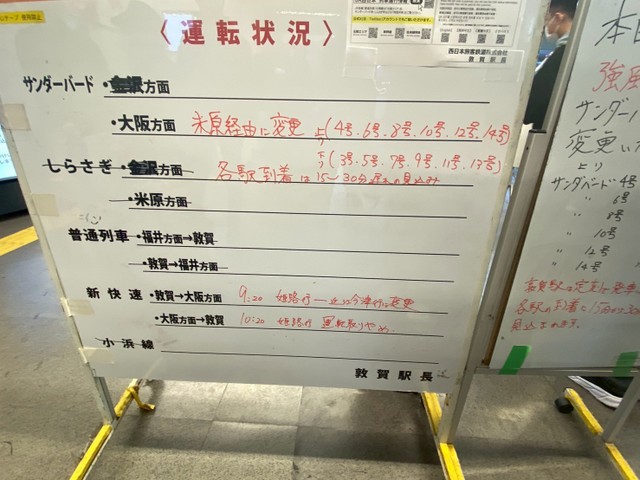 〈運転状況〉
西日本旅客鉄道株式会社
敦賀駅長
サンダーバード・金沢方面
・大阪方面 米原経由に変更 上り(4号,6号,8号,10号,12号,14号)
下り(3号,5号,7号,9号,11号,13号)
しらさぎ・金沢方面 各駅到着は15〜30分遅れの見込み
・米原方面
普通列車・福井方面→敦賀
・敦賀→福井方面
新快速・敦賀→大阪方面 9:20 姫路行→近江今津行に変更
・大阪方面→敦賀 10:20 姫路行 運転取りやめ
小浜線
敦賀駅長
本日
強風
サンダーバ
変更いた
上り
サンダバード4号
〃 6号
〃 8号
〃 10号
〃 12号
〃 14号
敦賀駅は定刻に発車
各駅の到着に15分から30
見込まれます。